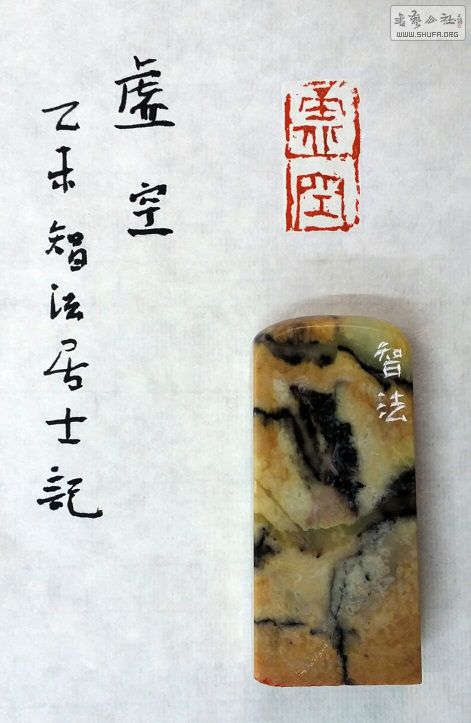 虚空
乙未智法居士記
虚空
智法
书艺公社
WWW.SHUFA.ORG